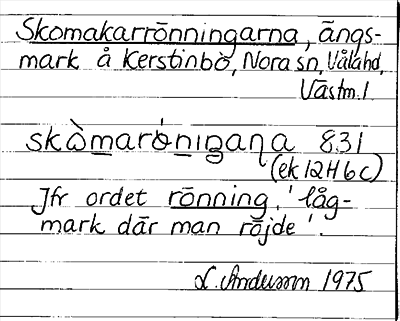 Skomakarrönningarna, ängs-
mark å Kerstinbo, Nora sn, Våla hd,
Västm. l.
skòmaróniŋaɳa 831
(ek 12H6c)
Jfr ordet rönning, 'låg-
mark där man röjde'.
L. Andersson 1975